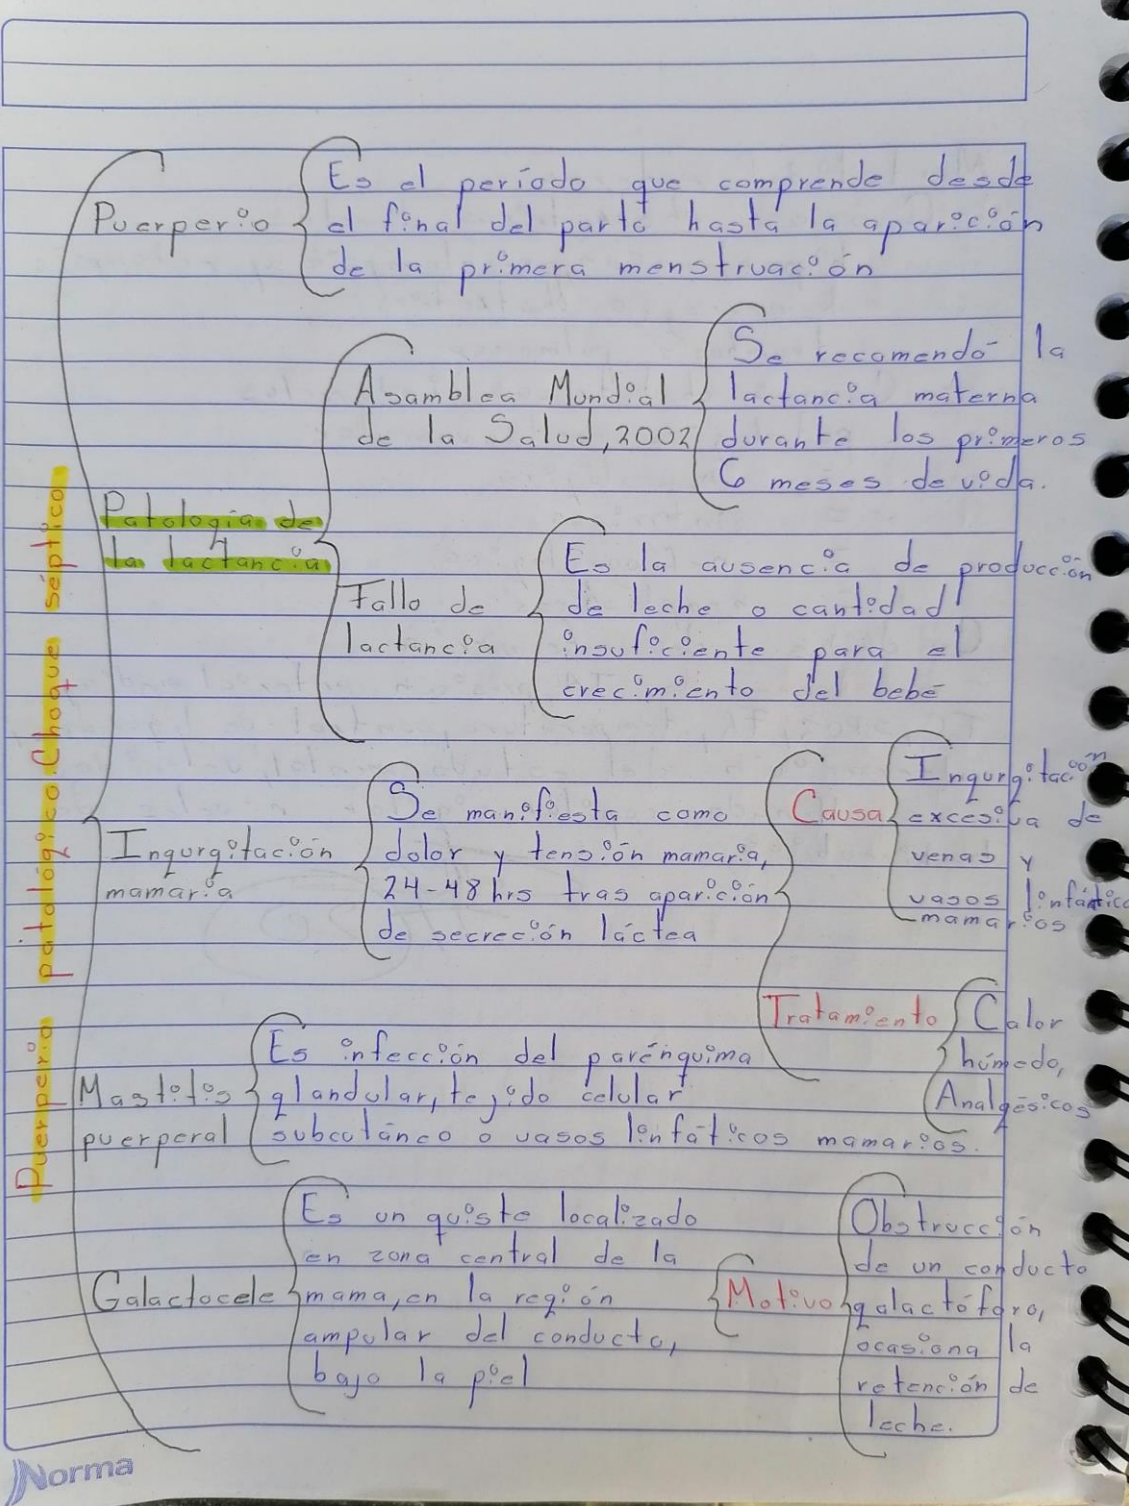 Puerperio patológico. Choque séptico
Puerperio
Es el período que comprende desde
el final del parto hasta la aparición
de la primera menstruación
Patología de
la lactancia
Asamblea Mundial
de la Salud, 2002
Se recomendó la
lactancia materna
durante los primeros
6 meses de vida.
Fallo de
lactancia
Es la ausencia de producción
de leche o cantidad
insuficiente para el
crecimiento del bebé
Ingurgitación
mamaria
Se manifiesta como
dolor y tensión mamaria,
24-48 hrs tras aparición
de secreción láctea
Causa
Ingurgitación
excesiva de
venas y
vasos linfático
mamarios
Tratamiento
Calor
húmedo,
Analgésicos
Mastitis
puerperal
Es infección del parénquima
glandular, tejido celular
subcutáneo o vasos linfáticos mamarios.
Galactocele
Es un quiste localizado
en zona central de la
mama, en la región
ampular del conducto,
bajo la piel
Motivo
Obstrucción
de un conducto
galactóforo,
ocasiona la
retención de
leche.
Norma